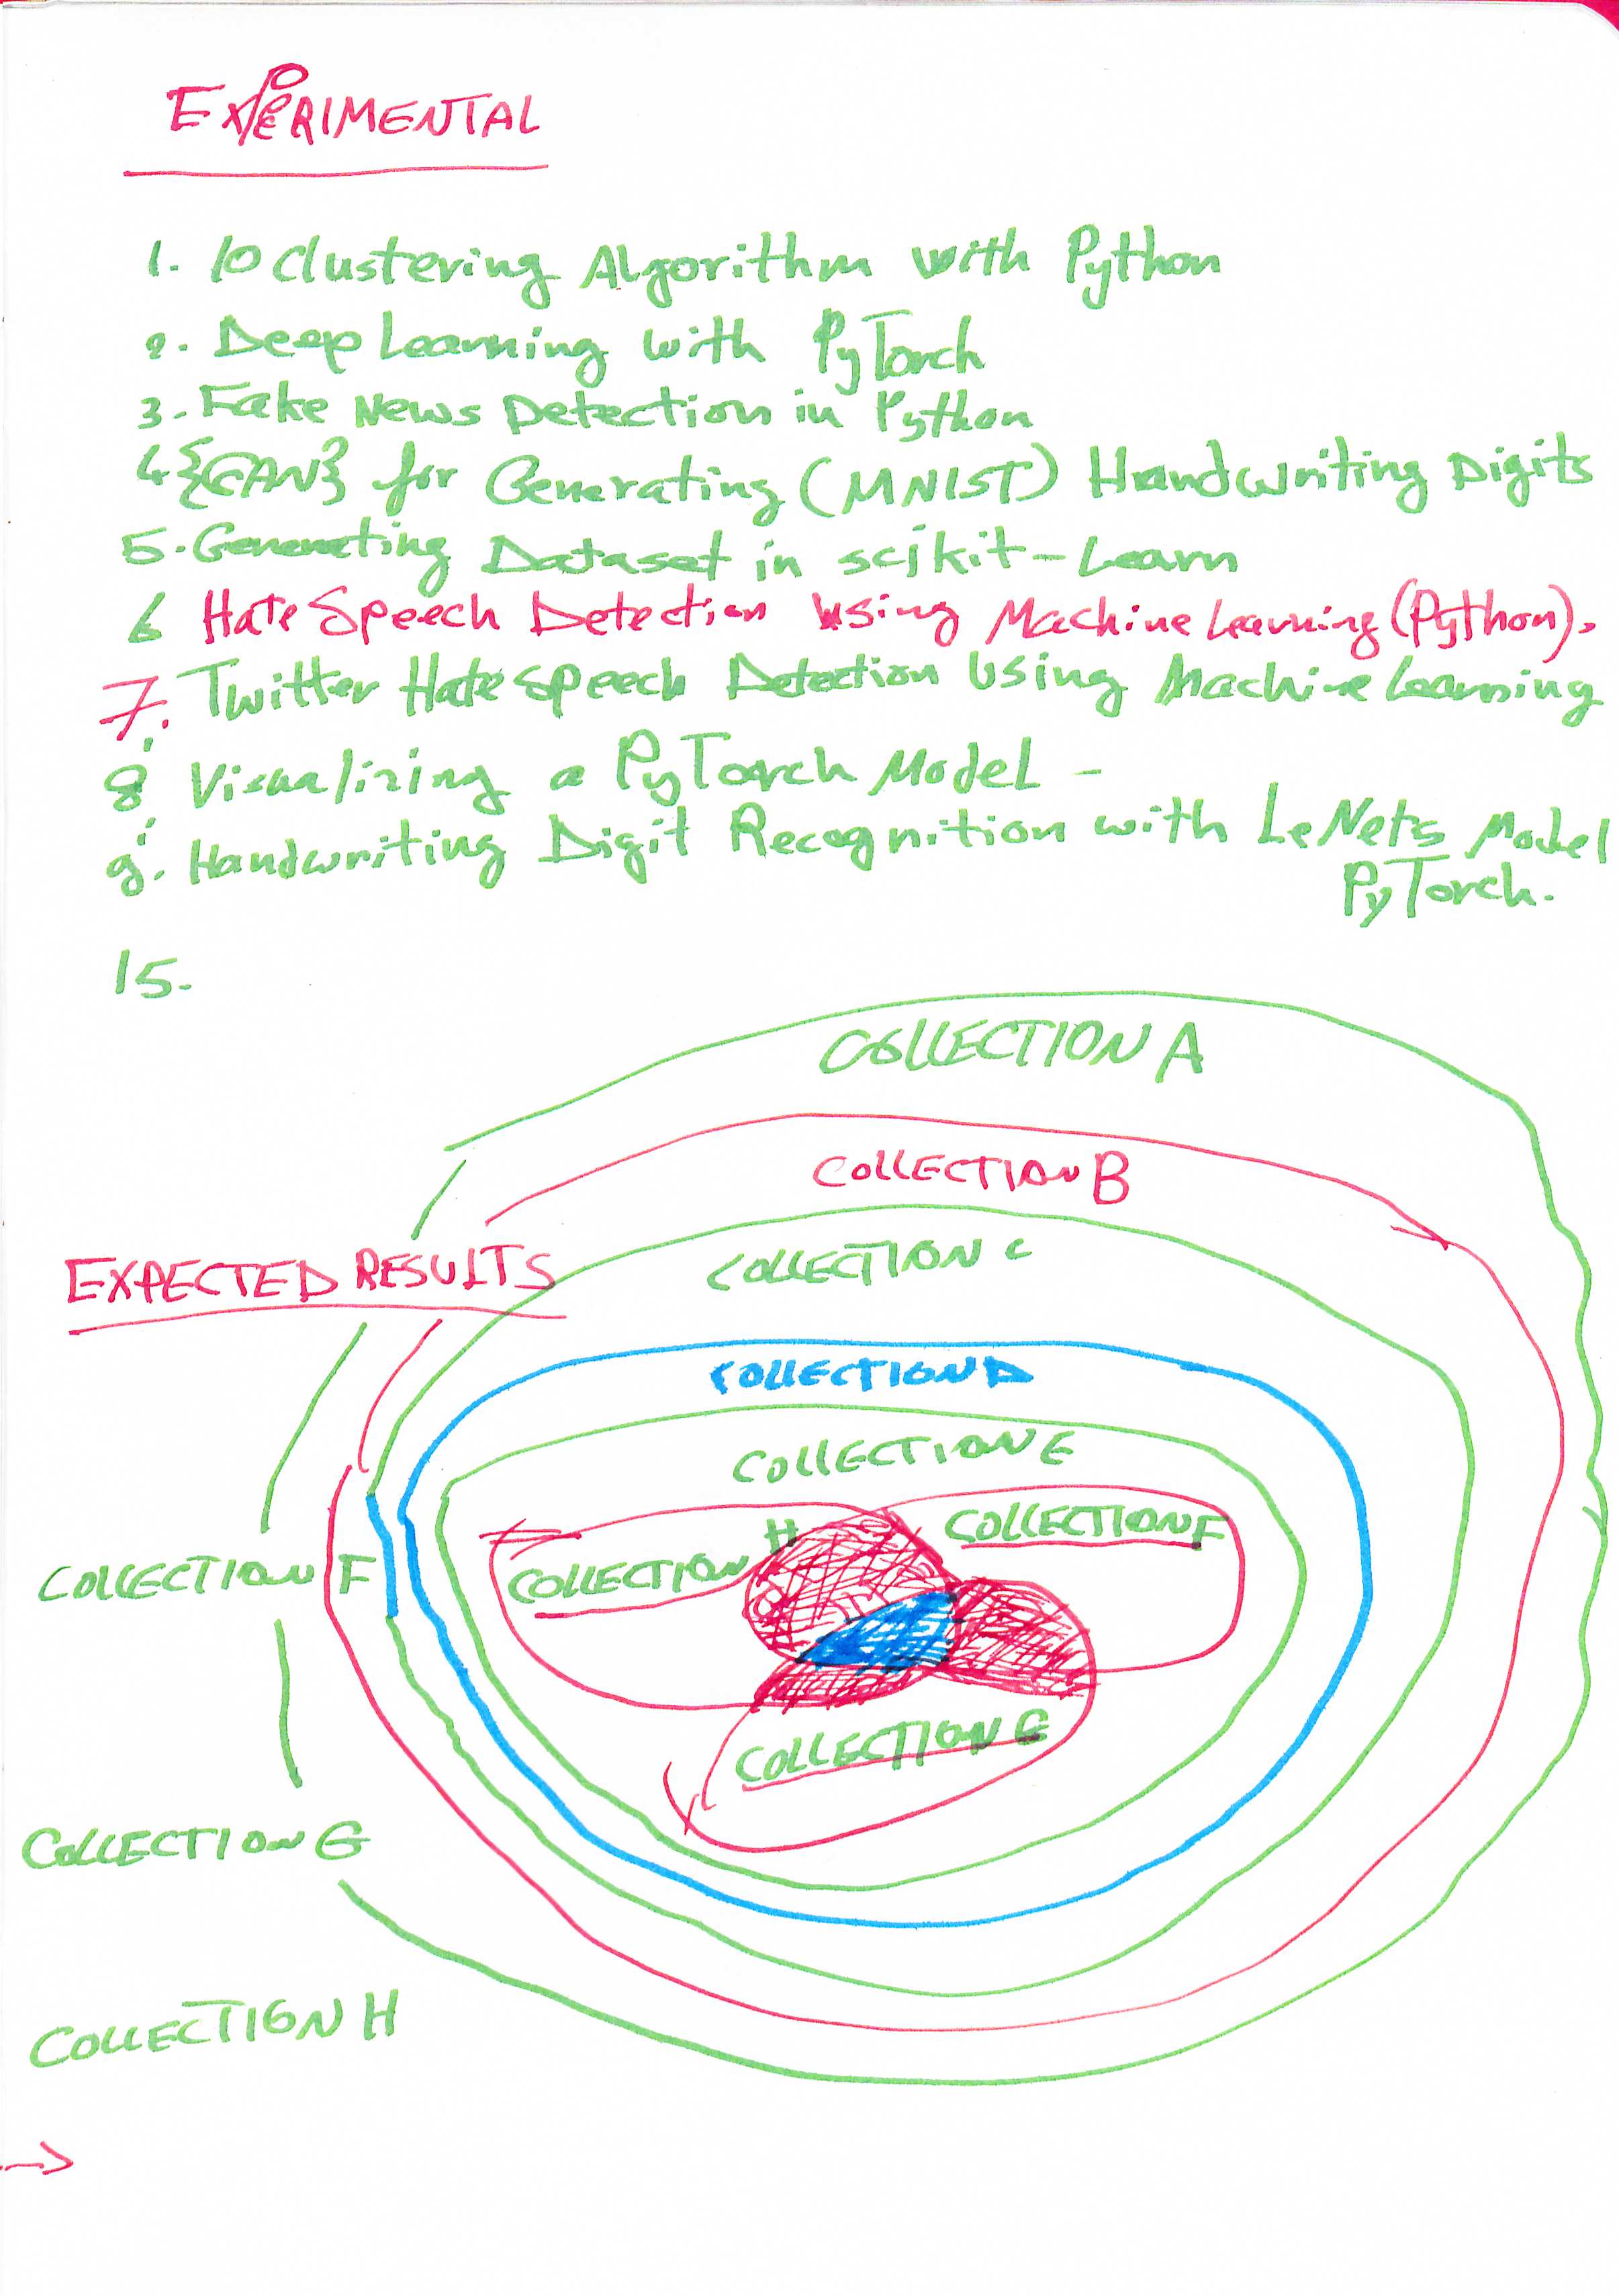 EXPERIMENTAL
1. 10 Clustering Algorithm with Python
2. Deep Learning with PyTorch
3. Fake News Detection in Python
4 {GAN} for Generating (MNIST) Handwriting Digits
5. Generating Dataset in scikit-Learn
6 Hate Speech Detection Using Machine Learning (Python).
7. Twitter Hate Speech Detection Using Machine Learning
8. Visualizing a PyTorch Model -
9. Handwriting Digit Recognition with LeNet5 Model
PyTorch.
15.
COLLECTION A
COLLECTION B
COLLECTION C
EXPECTED RESULTS
COLLECTION D
COLLECTION E
COLLECTION H
COLLECTION F
COLLECTION F
COLLECTION G
COLLECTION G
COLLECTION H